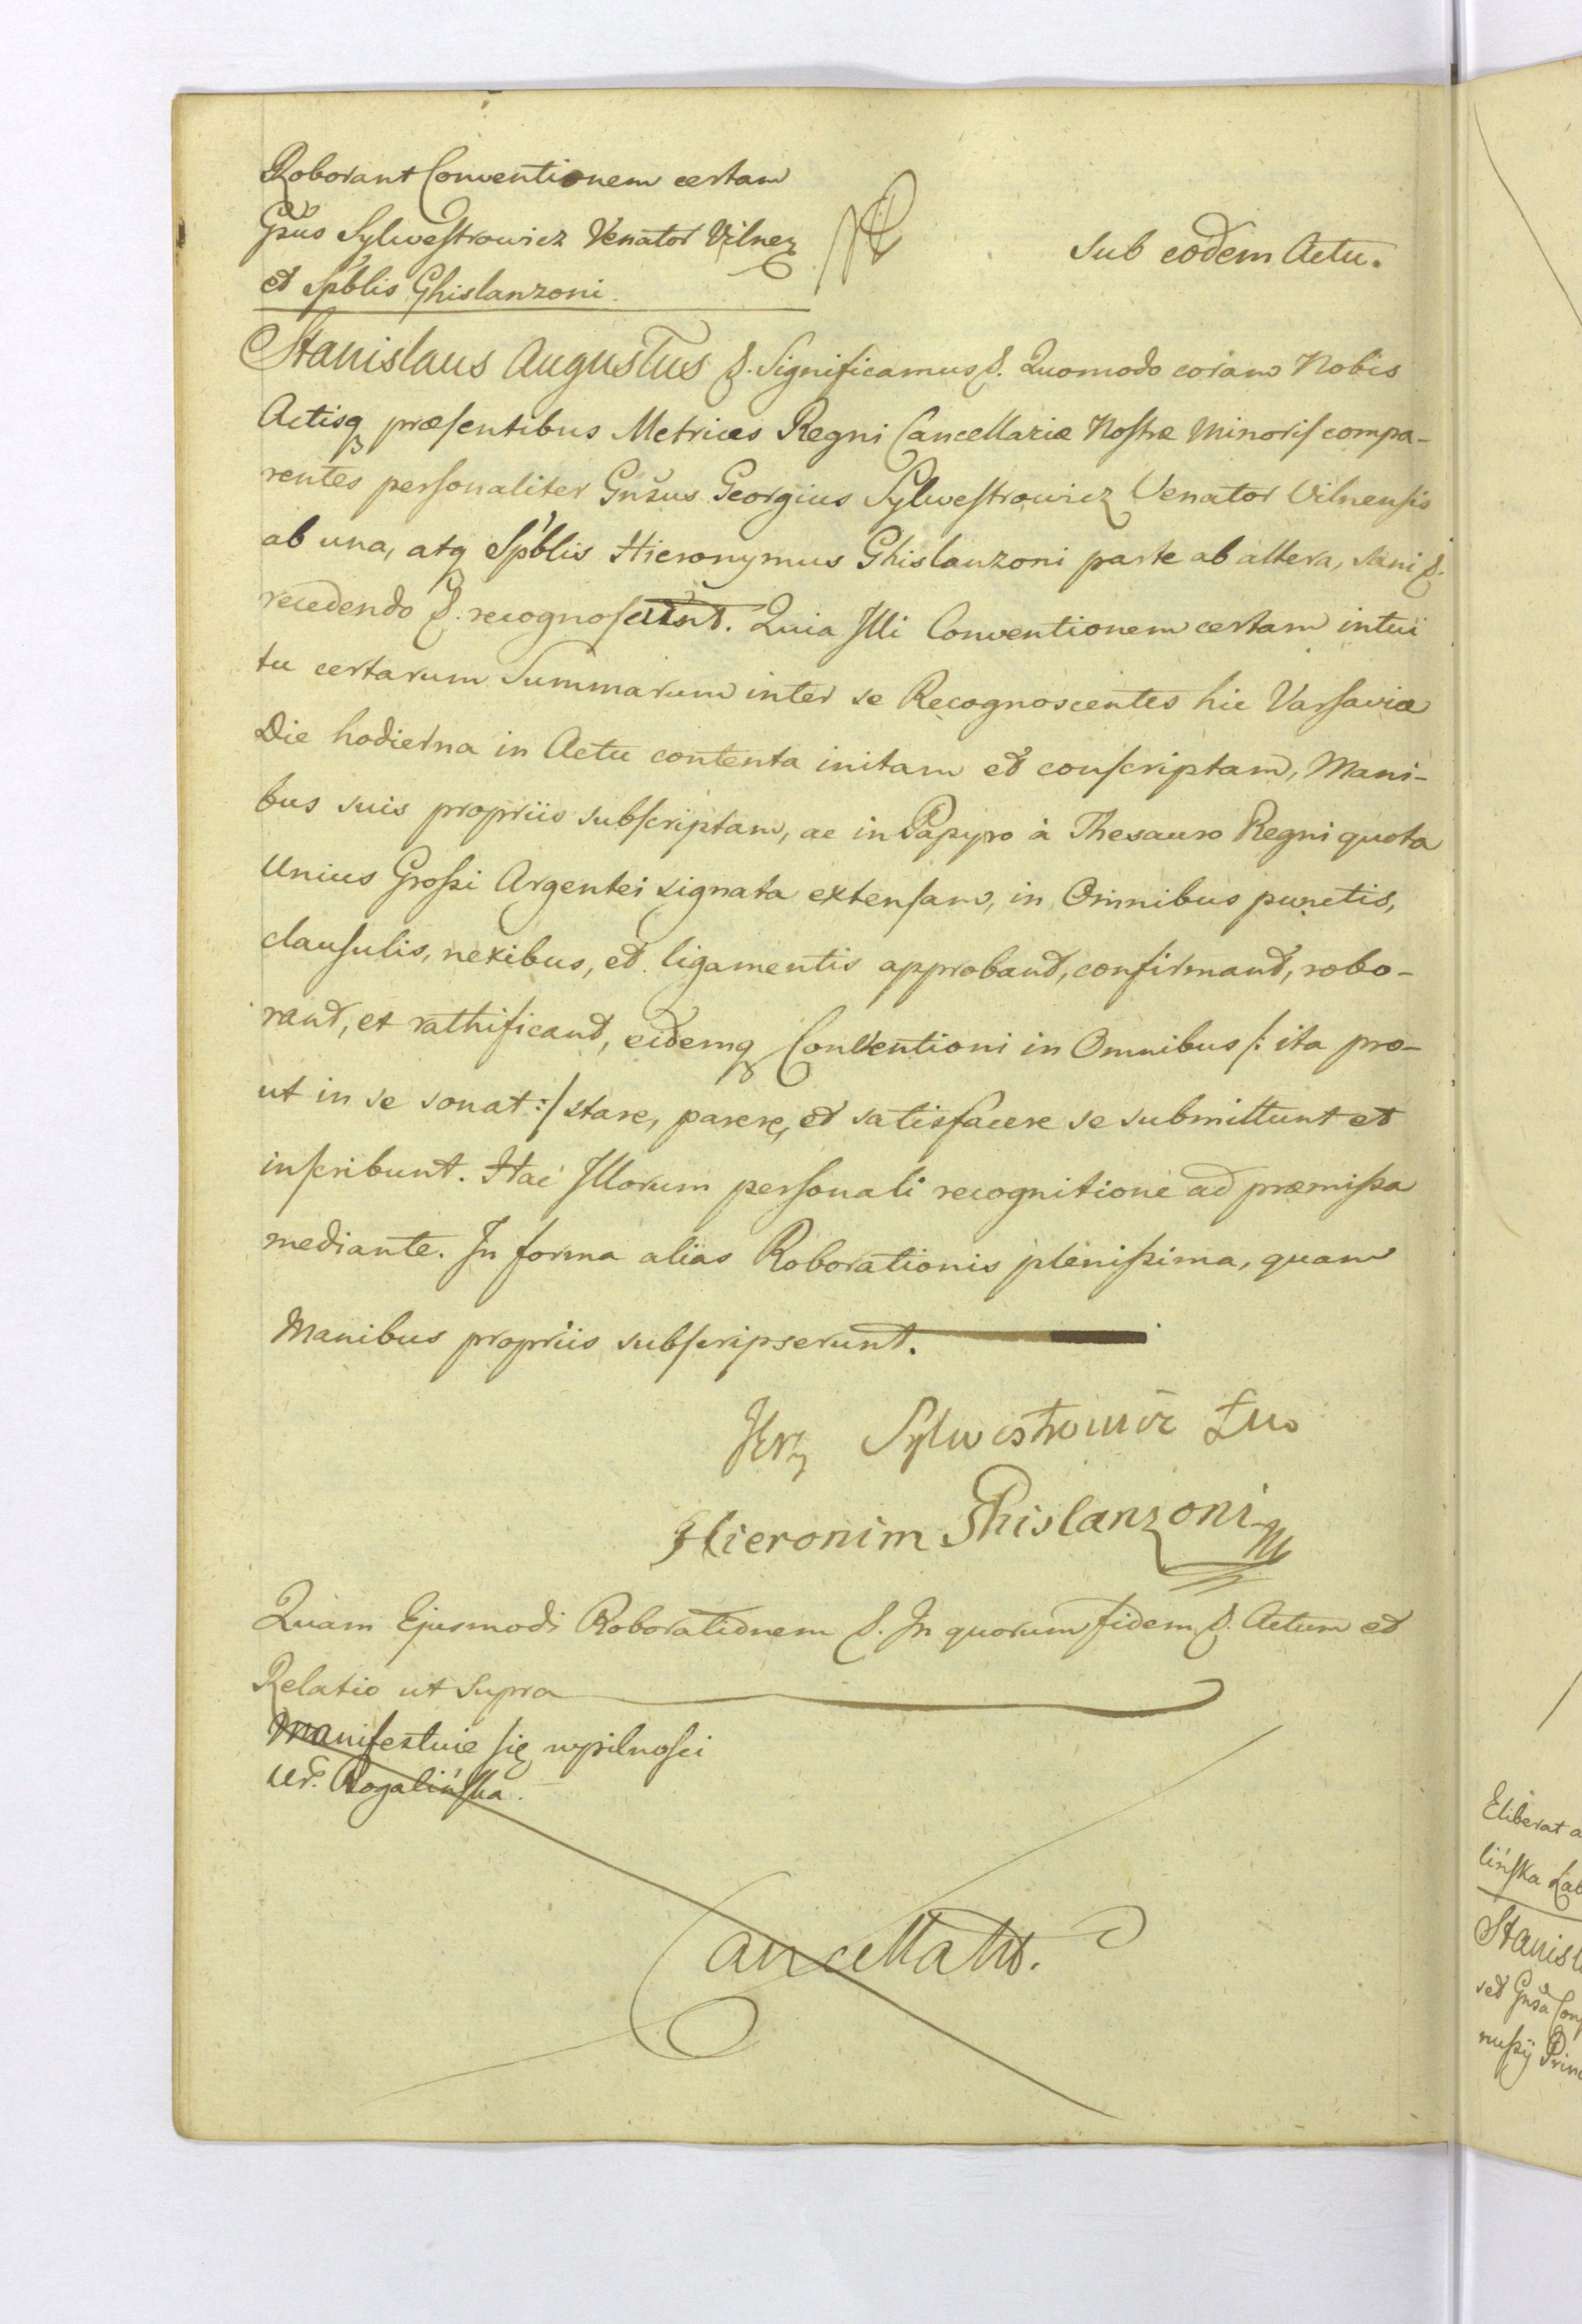 Roborant Conventionem certam
Gnsus Sylwestrowicz Venator Vilnen
et Spblis Ghislanzoni.
Sub eodem Actu.
Stanislaus Augustus &. Significamus &. Quomodo coram Nobis
Actisq præsentibus Metrices Regni Cancellariæ Nostræ Minoris compa-
rentes personaliter Gnsus Georgius Sylwestrowicz Venator Vilnensis
ab una, atq Spblis Hieronymus Ghislanzoni parte ab altera, sani &.
recedendo &. recognoscunt. Quia Illi Conventionem certam intui
tu certarum Summarum inter se Recognoscentes hic Varsaviæ
Die hodierna in Actu contenta initam et conscriptam, Mani-
bus suis propriis subscriptam, ac in Papyro à Thesauro Regni quota
Unius Grossi Argentei signata extensam, in Omnibus punctis,
clausulis, nexibus, et ligamentis approband, confirmand, robo-
rand, et rathificand, eidemq Conventioni in Omnibus /: ita pro-
ut in se sonat :/ stare, parere, et satisfacere se submittunt et
inscribunt. Hac Illorum personali recognitione ad præmissa
mediante. In forma alias Roborationis plenissima, quam
Manibus propriis subscripserunt.
Jerzy Sylwestrowicz Łw
Hieronim Ghislanzoni
Quam Ejusmodi Roborationem &. In quorum fidem &. Actum et
Relatio ut Supra
Manifestuie się wpilności
Ur. Rogalińska.
Cancellatt.
Eliberat a
lińska
Stanisl
sed Gnsa Con
nussy Prin